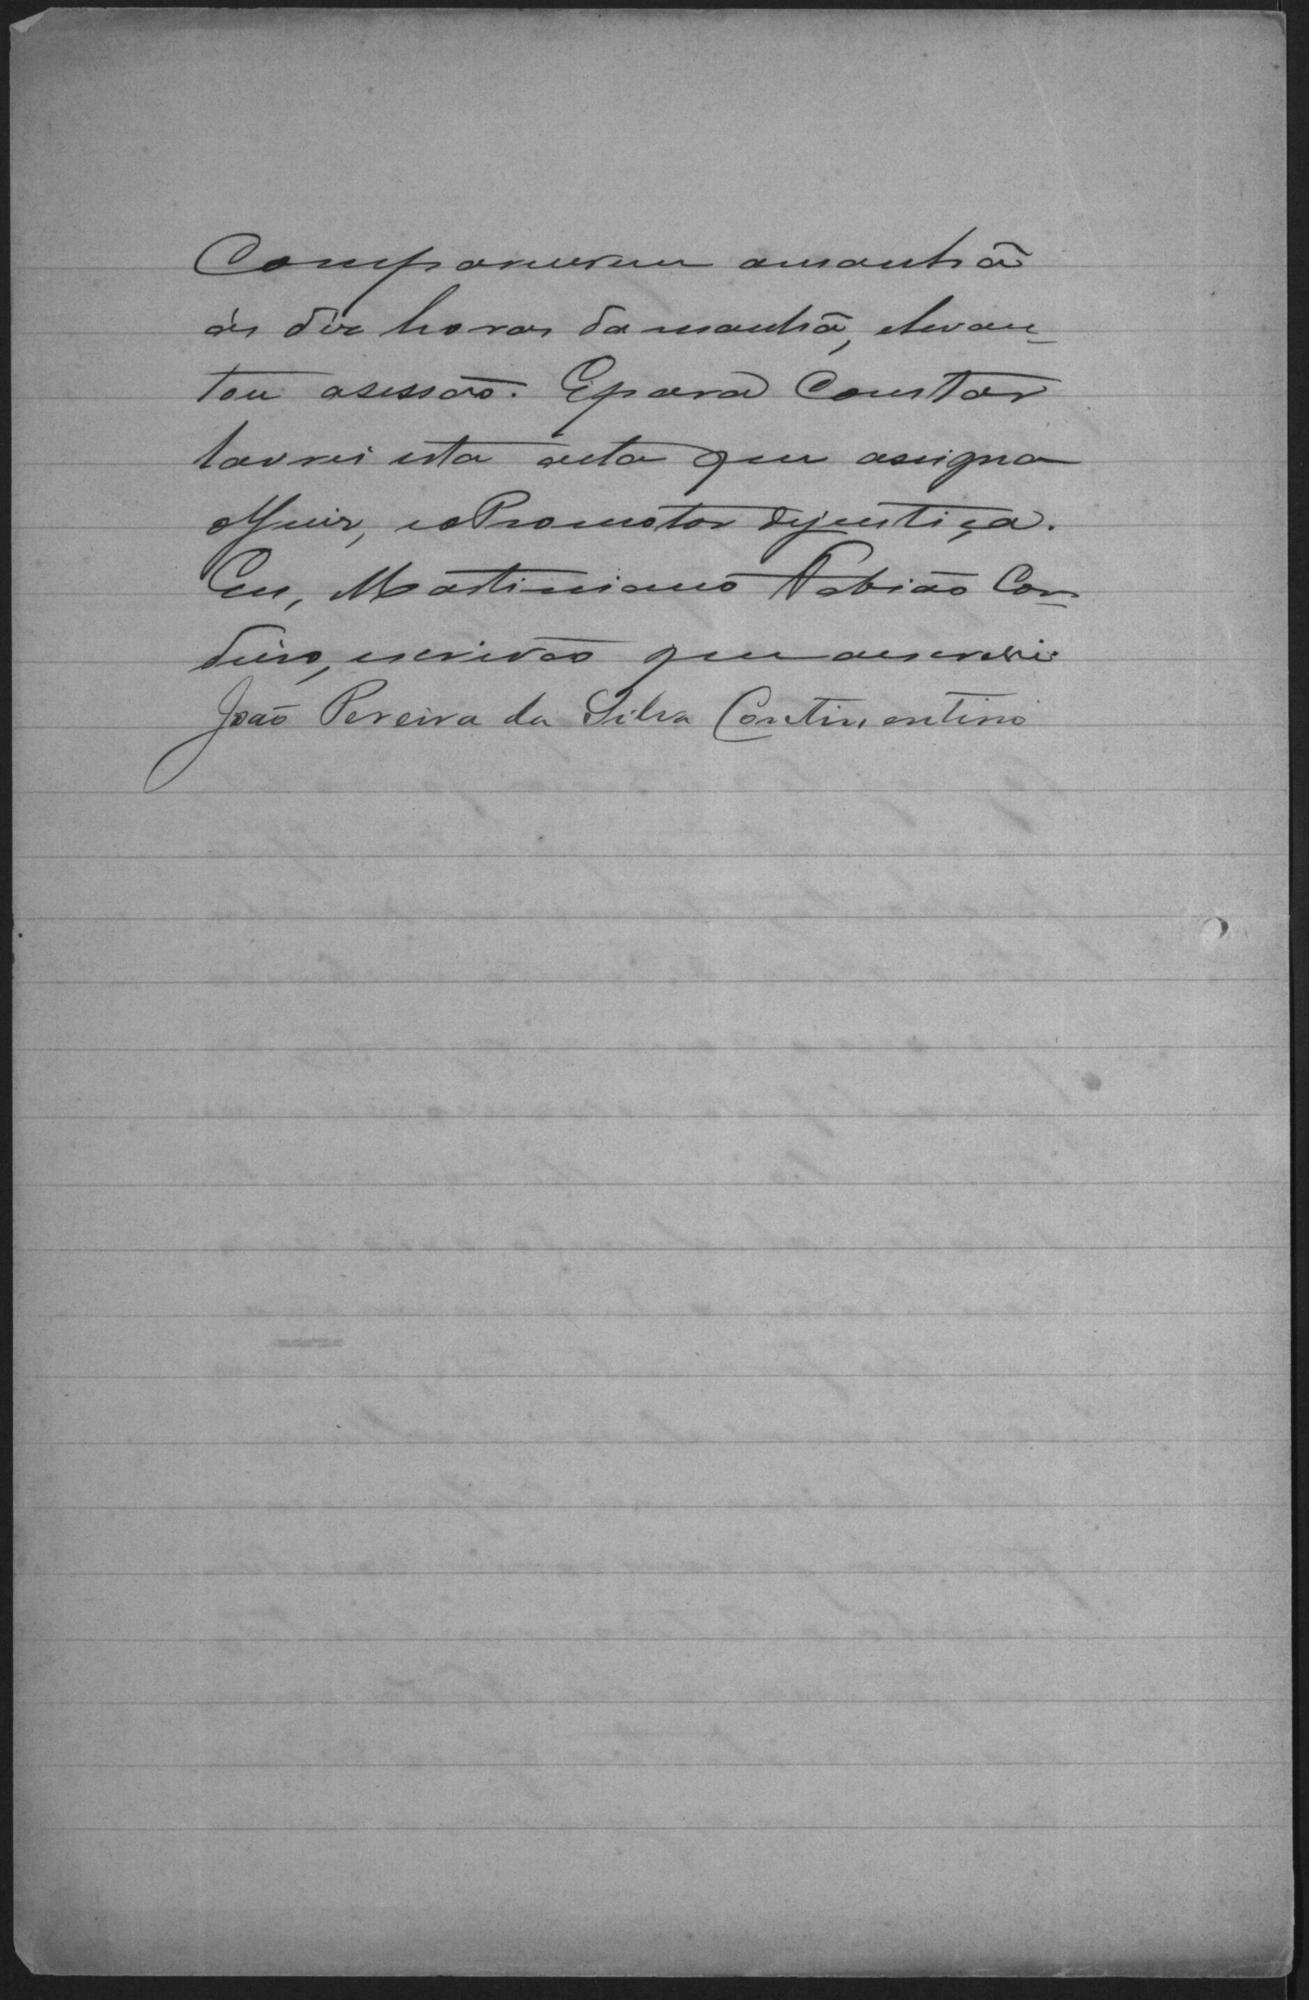 Comparecerem amanhã
ás dez horas da manhã, elevan-
tou asessão. Epara Constar
lavrei esta acta que assigna
oJuiz, eoPromotor dejustiça.
Eu, Martiniano Fabião Cor-
deiro, escrivão que aescrevi
João Pereira da Silva Continentino